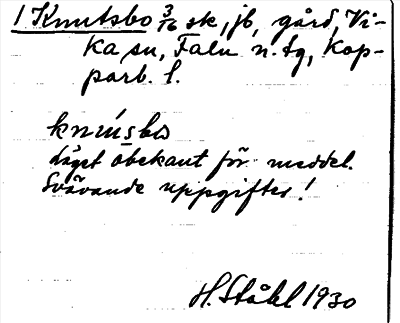 1 Knutsbo 3/16 sk, jb, gård, Vi-
ka sn, Falu n. tg, Kop-
parb. l.
knu̇sbo
Läget obekant för meddel.
Svävande uppgifter!
H. Ståhl 1930